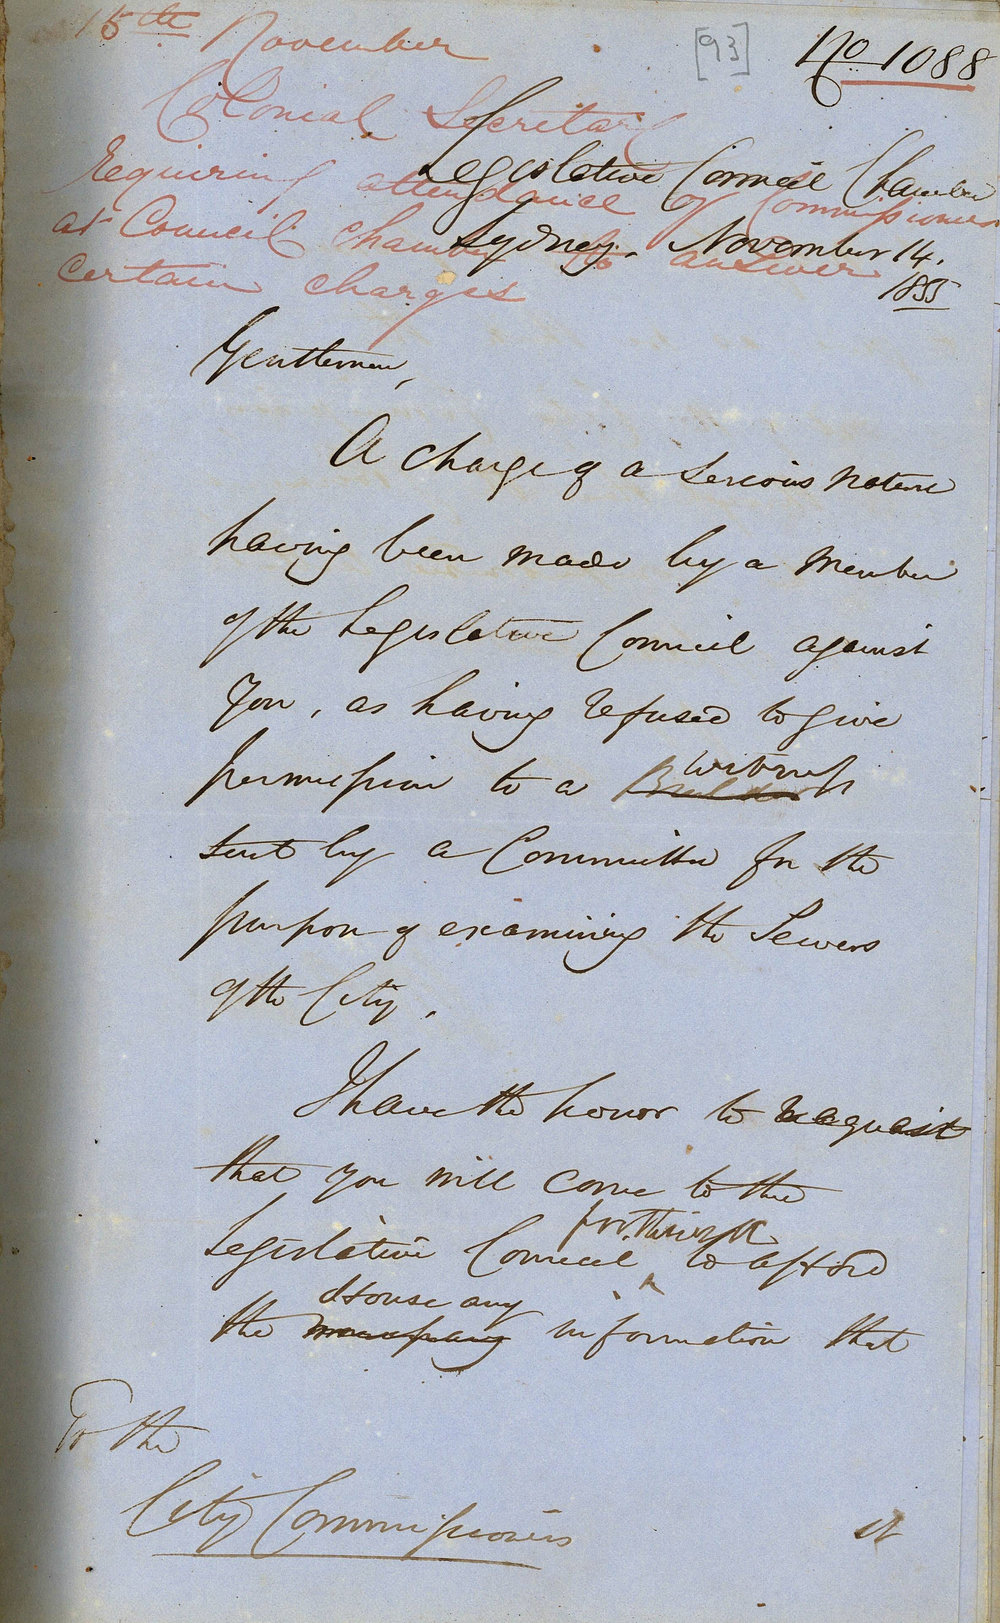 15th November
[93]
No 1088
Colonial Secretary
requiring attendance of Commissioners
at Council Chamber to answer
certain charges
Legislative Council Chamber
Sydney. November 14.
1855
Gentlemen,
A charge of a serious nature
having been made by a Member
of the Legislative Council against
you, as having refused to give
permission to a Builder witness
sent by a Committee for the
purpose of examining the Sewers
of the City.
I have the honor to request
that you will come to the
Legislative Council forthwith to afford
the necessary House any information that
To the
City Commissioners
it